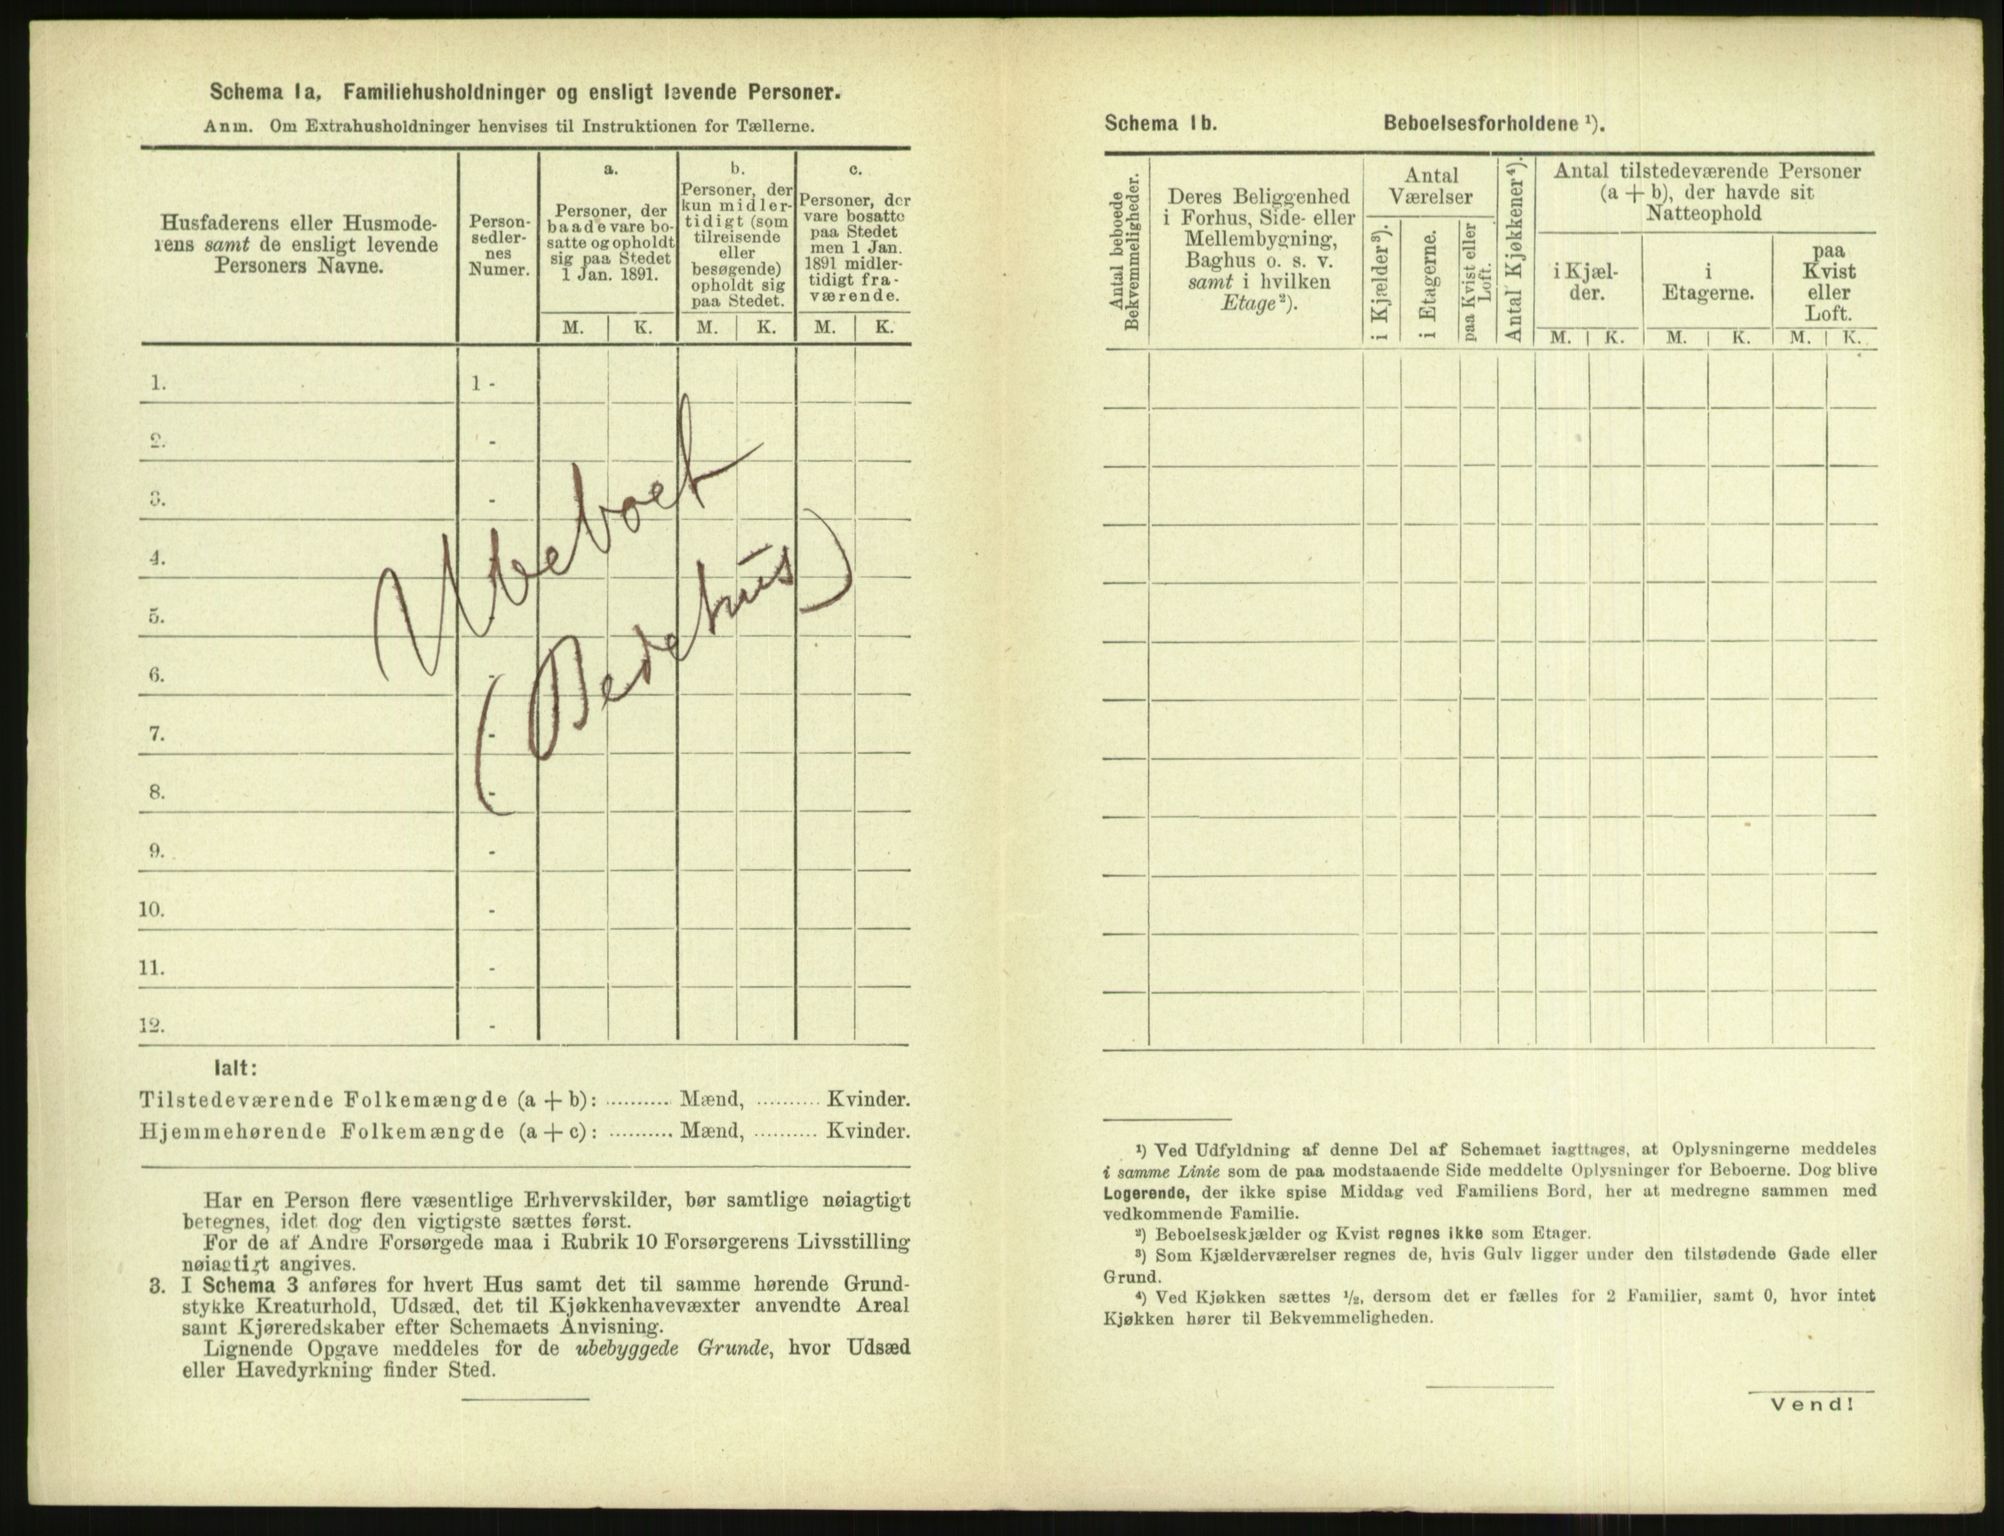 Schema 1a. Familiehusholdninger og ensligt levende Personer.
Anm. Om Extrahusholdninger henvises til Instruktionen for Tællerne.
Husfaderens eller Husmode-
rens samt de ensligt levende
Personers Navne.
Person-
sedler-
nes
Numer.
a.
Personer, der
baade vare bo-
satte og opholdt
sig paa Stedet
1 Jan. 1891.
b.
Personer, der
kun midler-
tidigt (som
tilreisende
eller
besøgende)
opholdt sig
paa Stedet.
c.
Personer, der
vare bosatte
paa Stedet
men 1 Jan.
1891 midler-
tidigt fra-
værende.
M. K. M. K. M. K.
1. 1 -
2. -
3. -
4.
5.
6. -
7. -
8. -
9. -
10. -
11. -
12. -
Ubeboet
(Bedehus)
Ialt:
Tilstedeværende Folkemængde (a + b): .......... Mænd, .......... Kvinder.
Hjemmehørende Folkemængde (a + c): .......... Mænd, .......... Kvinder.
Har en Person flere væsentlige Erhvervskilder, bør samtlige nøiagtigt
betegnes, idet dog den vigtigste sættes først.
For de af Andre Forsørgede maa i Rubrik 10 Forsørgerens Livsstilling
nøiagtigt angives.
3. I Schema 3 anføres for hvert Hus samt det til samme hørende Grund-
stykke Kreaturhold, Udsæd, det til Kjøkkenhavevæxter anvendte Areal
samt Kjøreredskaber efter Schemaets Anvisning.
Lignende Opgave meddeles for de ubebyggede Grunde, hvor Udsæd
eller Havedyrkning finder Sted.
Schema 1b. Beboelsesforholdene ¹).
Antal beboede
Bekvemmeligheder.
Deres Beliggenhed
i Forhus, Side- eller
Mellembygning,
Baghus o. s. v.
samt i hvilken
Etage²).
Antal
Værelser
i Kjælder³).
i Etagerne.
paa Kvist eller
Loft.
Antal Kjøkkener⁴).
Antal tilstedeværende Personer
(a + b), der havde sit
Natteophold
i Kjæl-
der.
i
Etagerne.
paa
Kvist
eller
Loft.
M. K. M. K. M. K.
¹) Ved Udfyldning af denne Del af Schemaet iagttages, at Oplysningerne meddeles
i samme Linie som de paa modstaaende Side meddelte Oplysninger for Beboerne. Dog blive
Logerende, der ikke spise Middag ved Familiens Bord, her at medregne sammen med
vedkommende Familie.
²) Beboelseskjælder og Kvist regnes ikke som Etager.
³) Som Kjælderværelser regnes de, hvis Gulv ligger under den tilstødende Gade eller
Grund.
⁴) Ved Kjøkken sættes ¹/₂, dersom det er fælles for 2 Familier, samt 0, hvor intet
Kjøkken hører til Bekvemmeligheden.
Vend!